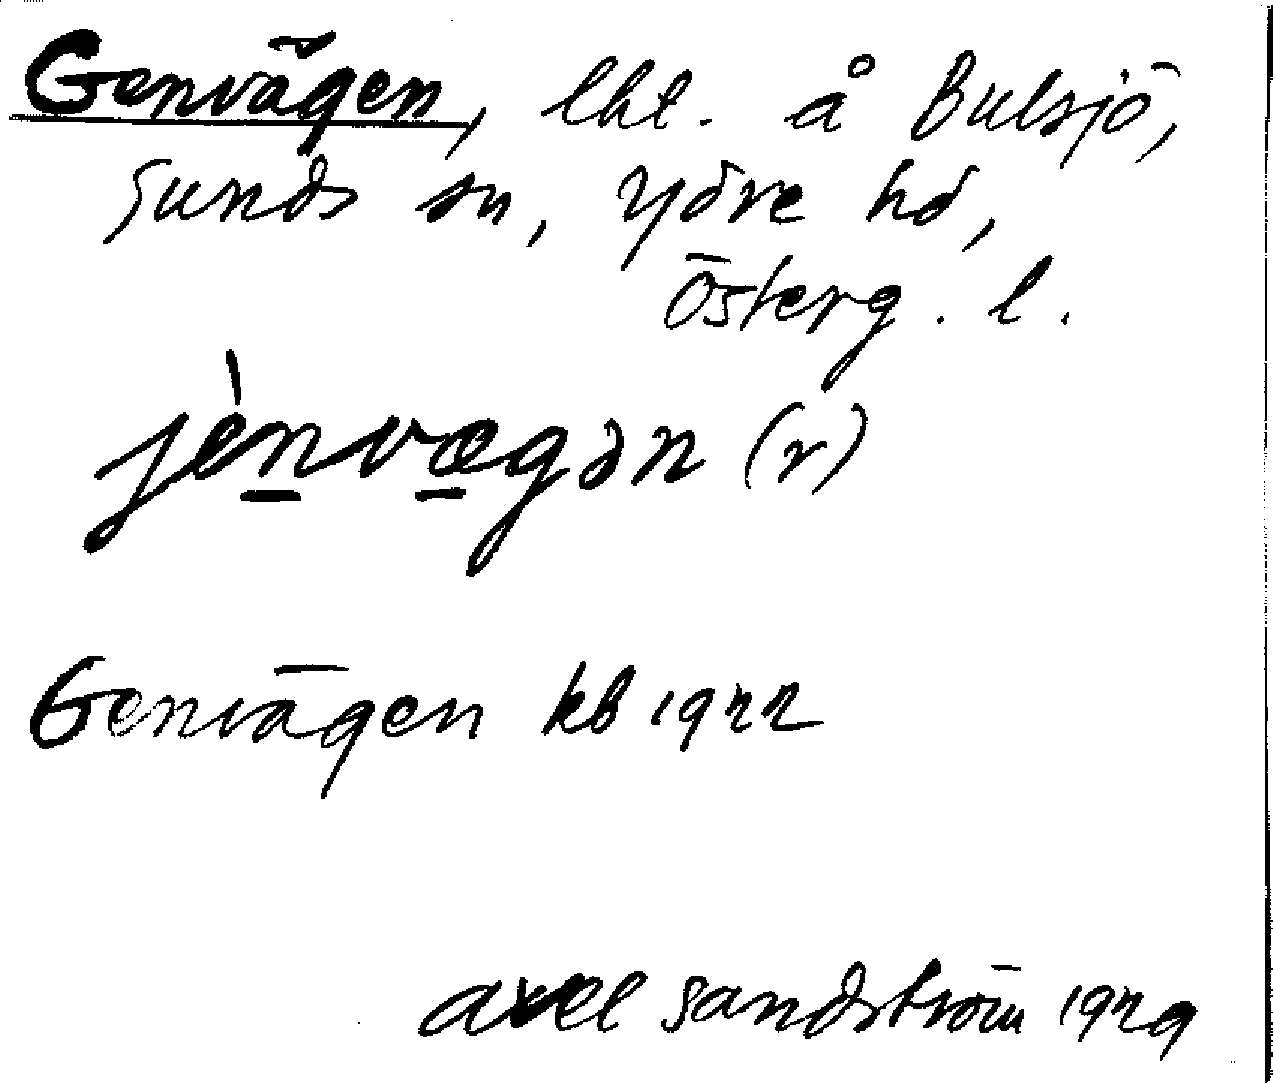 Genvägen, lht. å Bulsjö,
Sunds sn, Ydre hd,
Österg. l.
jènvægən (r)
Genvägen kb 1922
Axel Sandström 1929